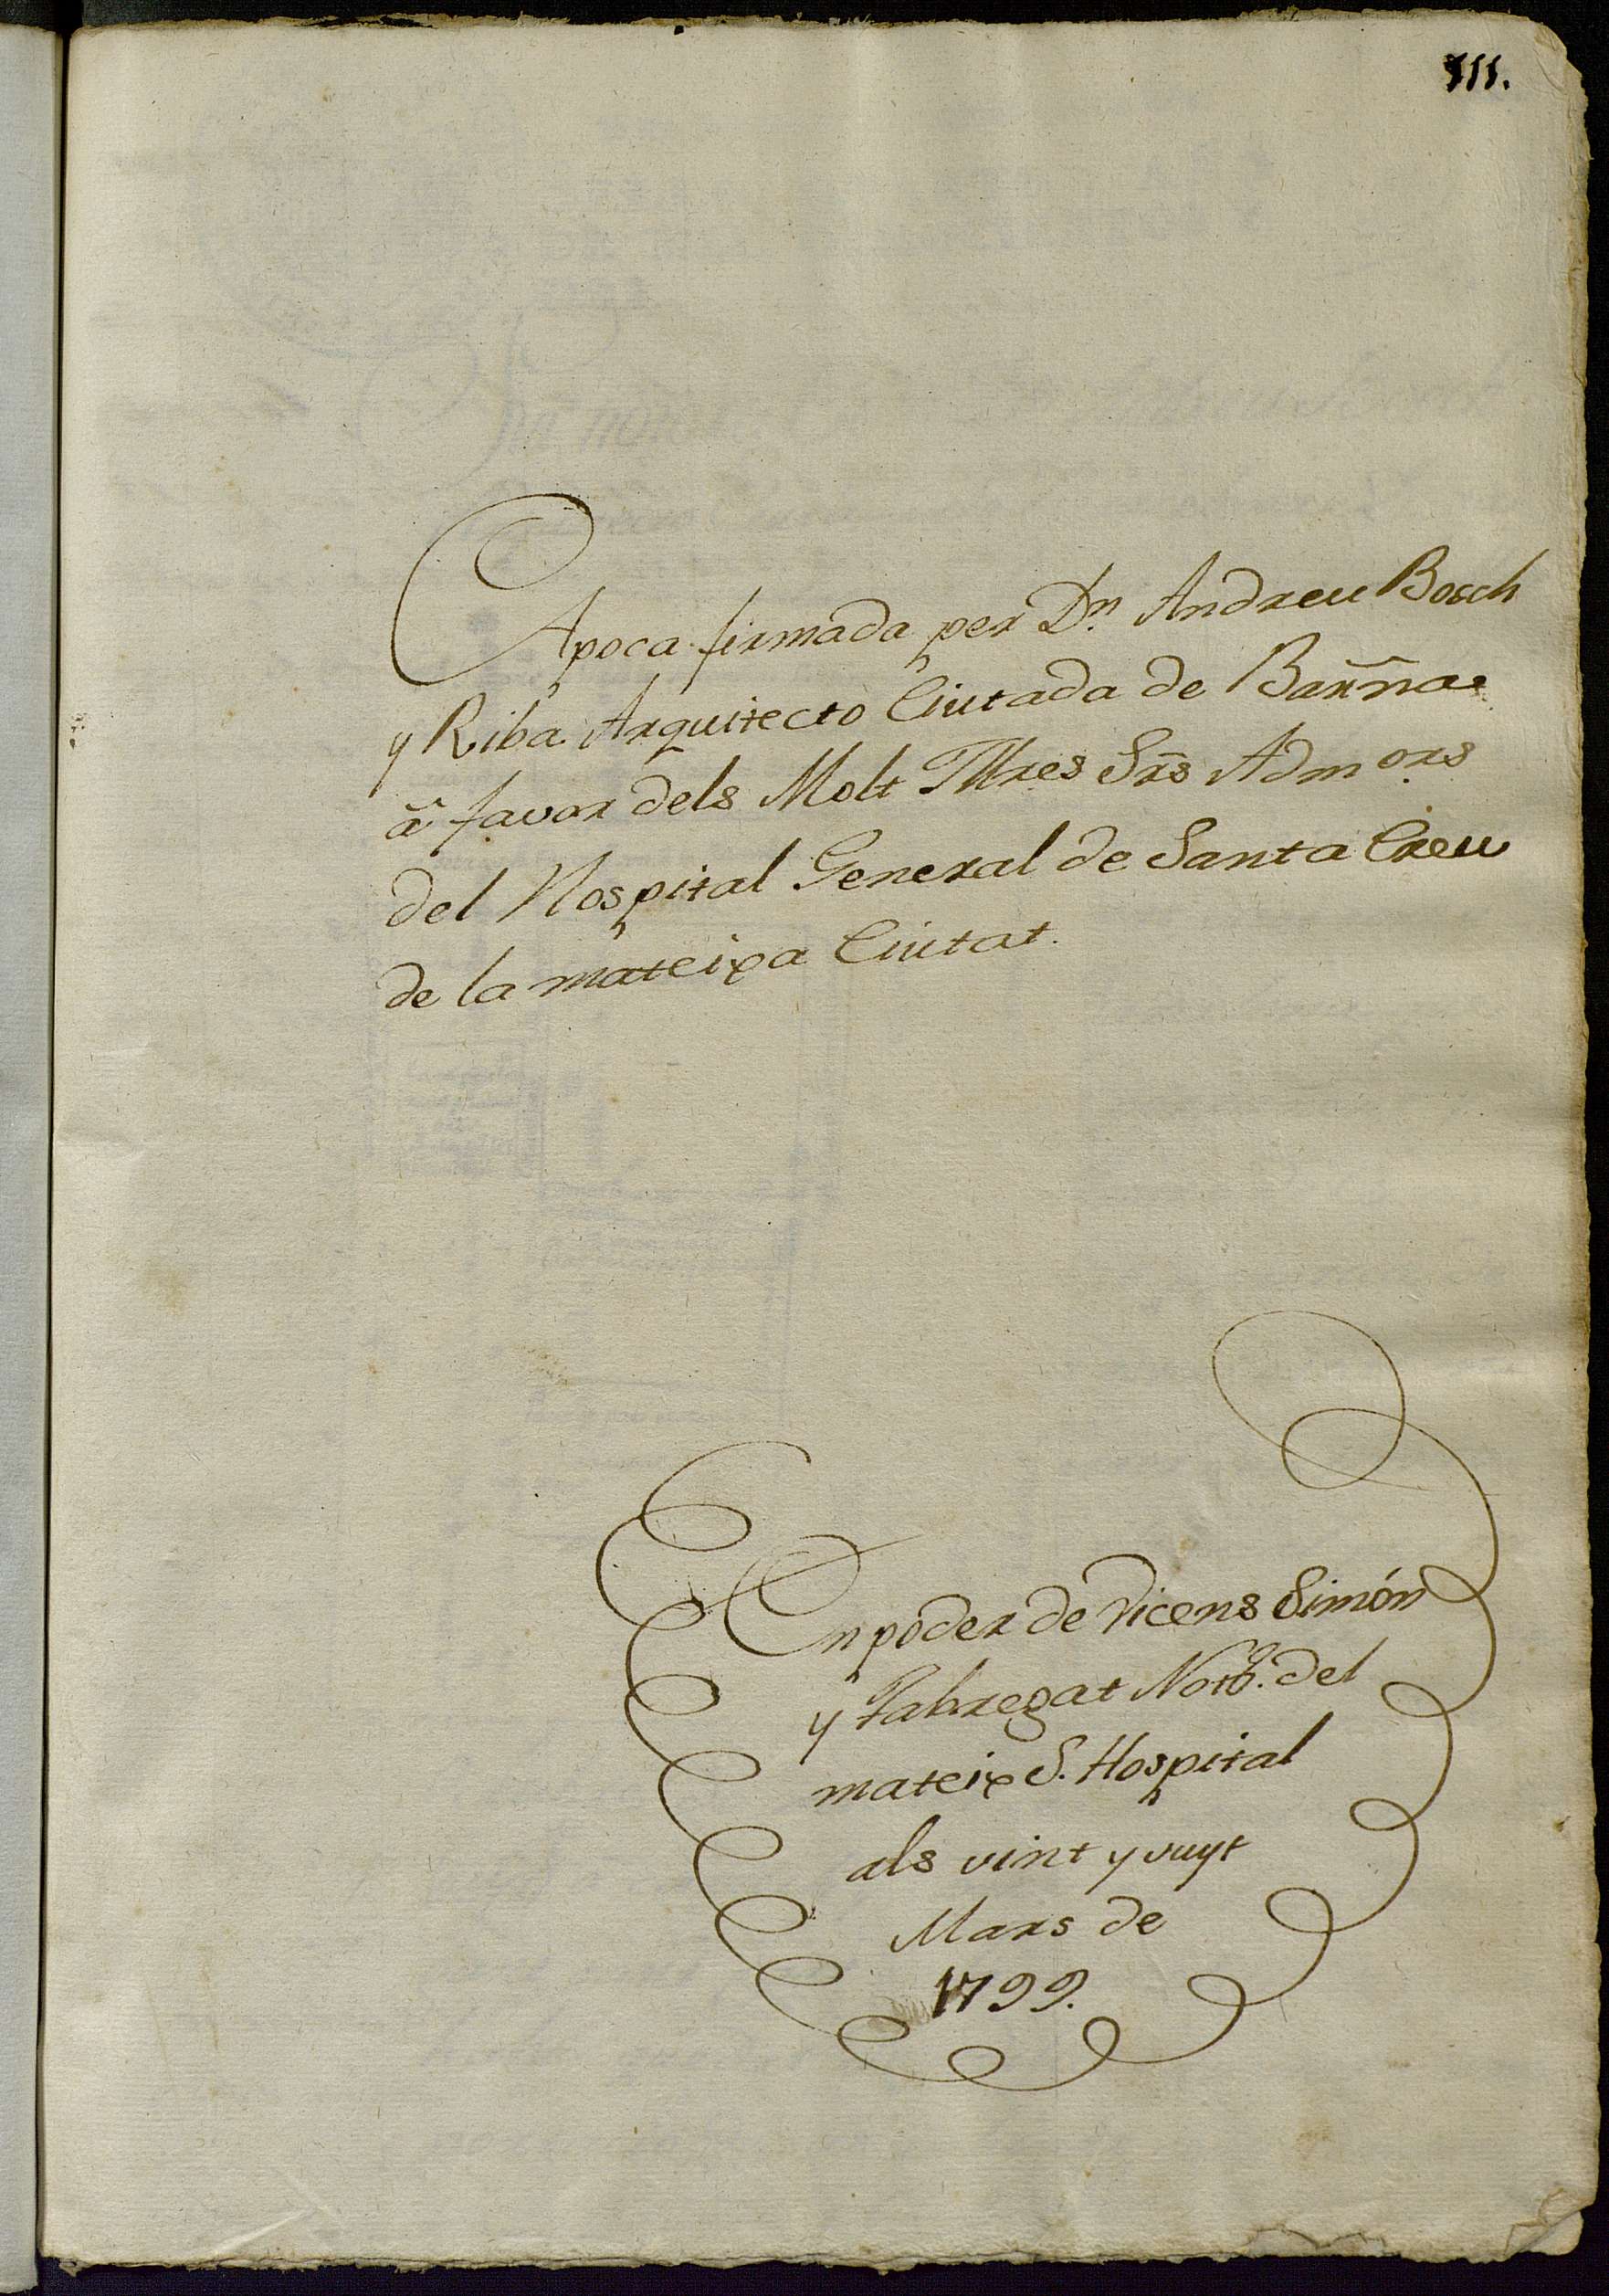 111.
Apoca firmada per Dn. Andreu Bosch
y Riba Arquitecto Ciutada de Barn̄a
â favor dels Molt Illres Srs̄ Admors
del Hospital General de Santa Creu
de la mateixa Ciutat.
En poder de Vicens Simón
y Fabregat Notō. del
mateix S. Hospital
als vint y vuyt
Mars de
1799.